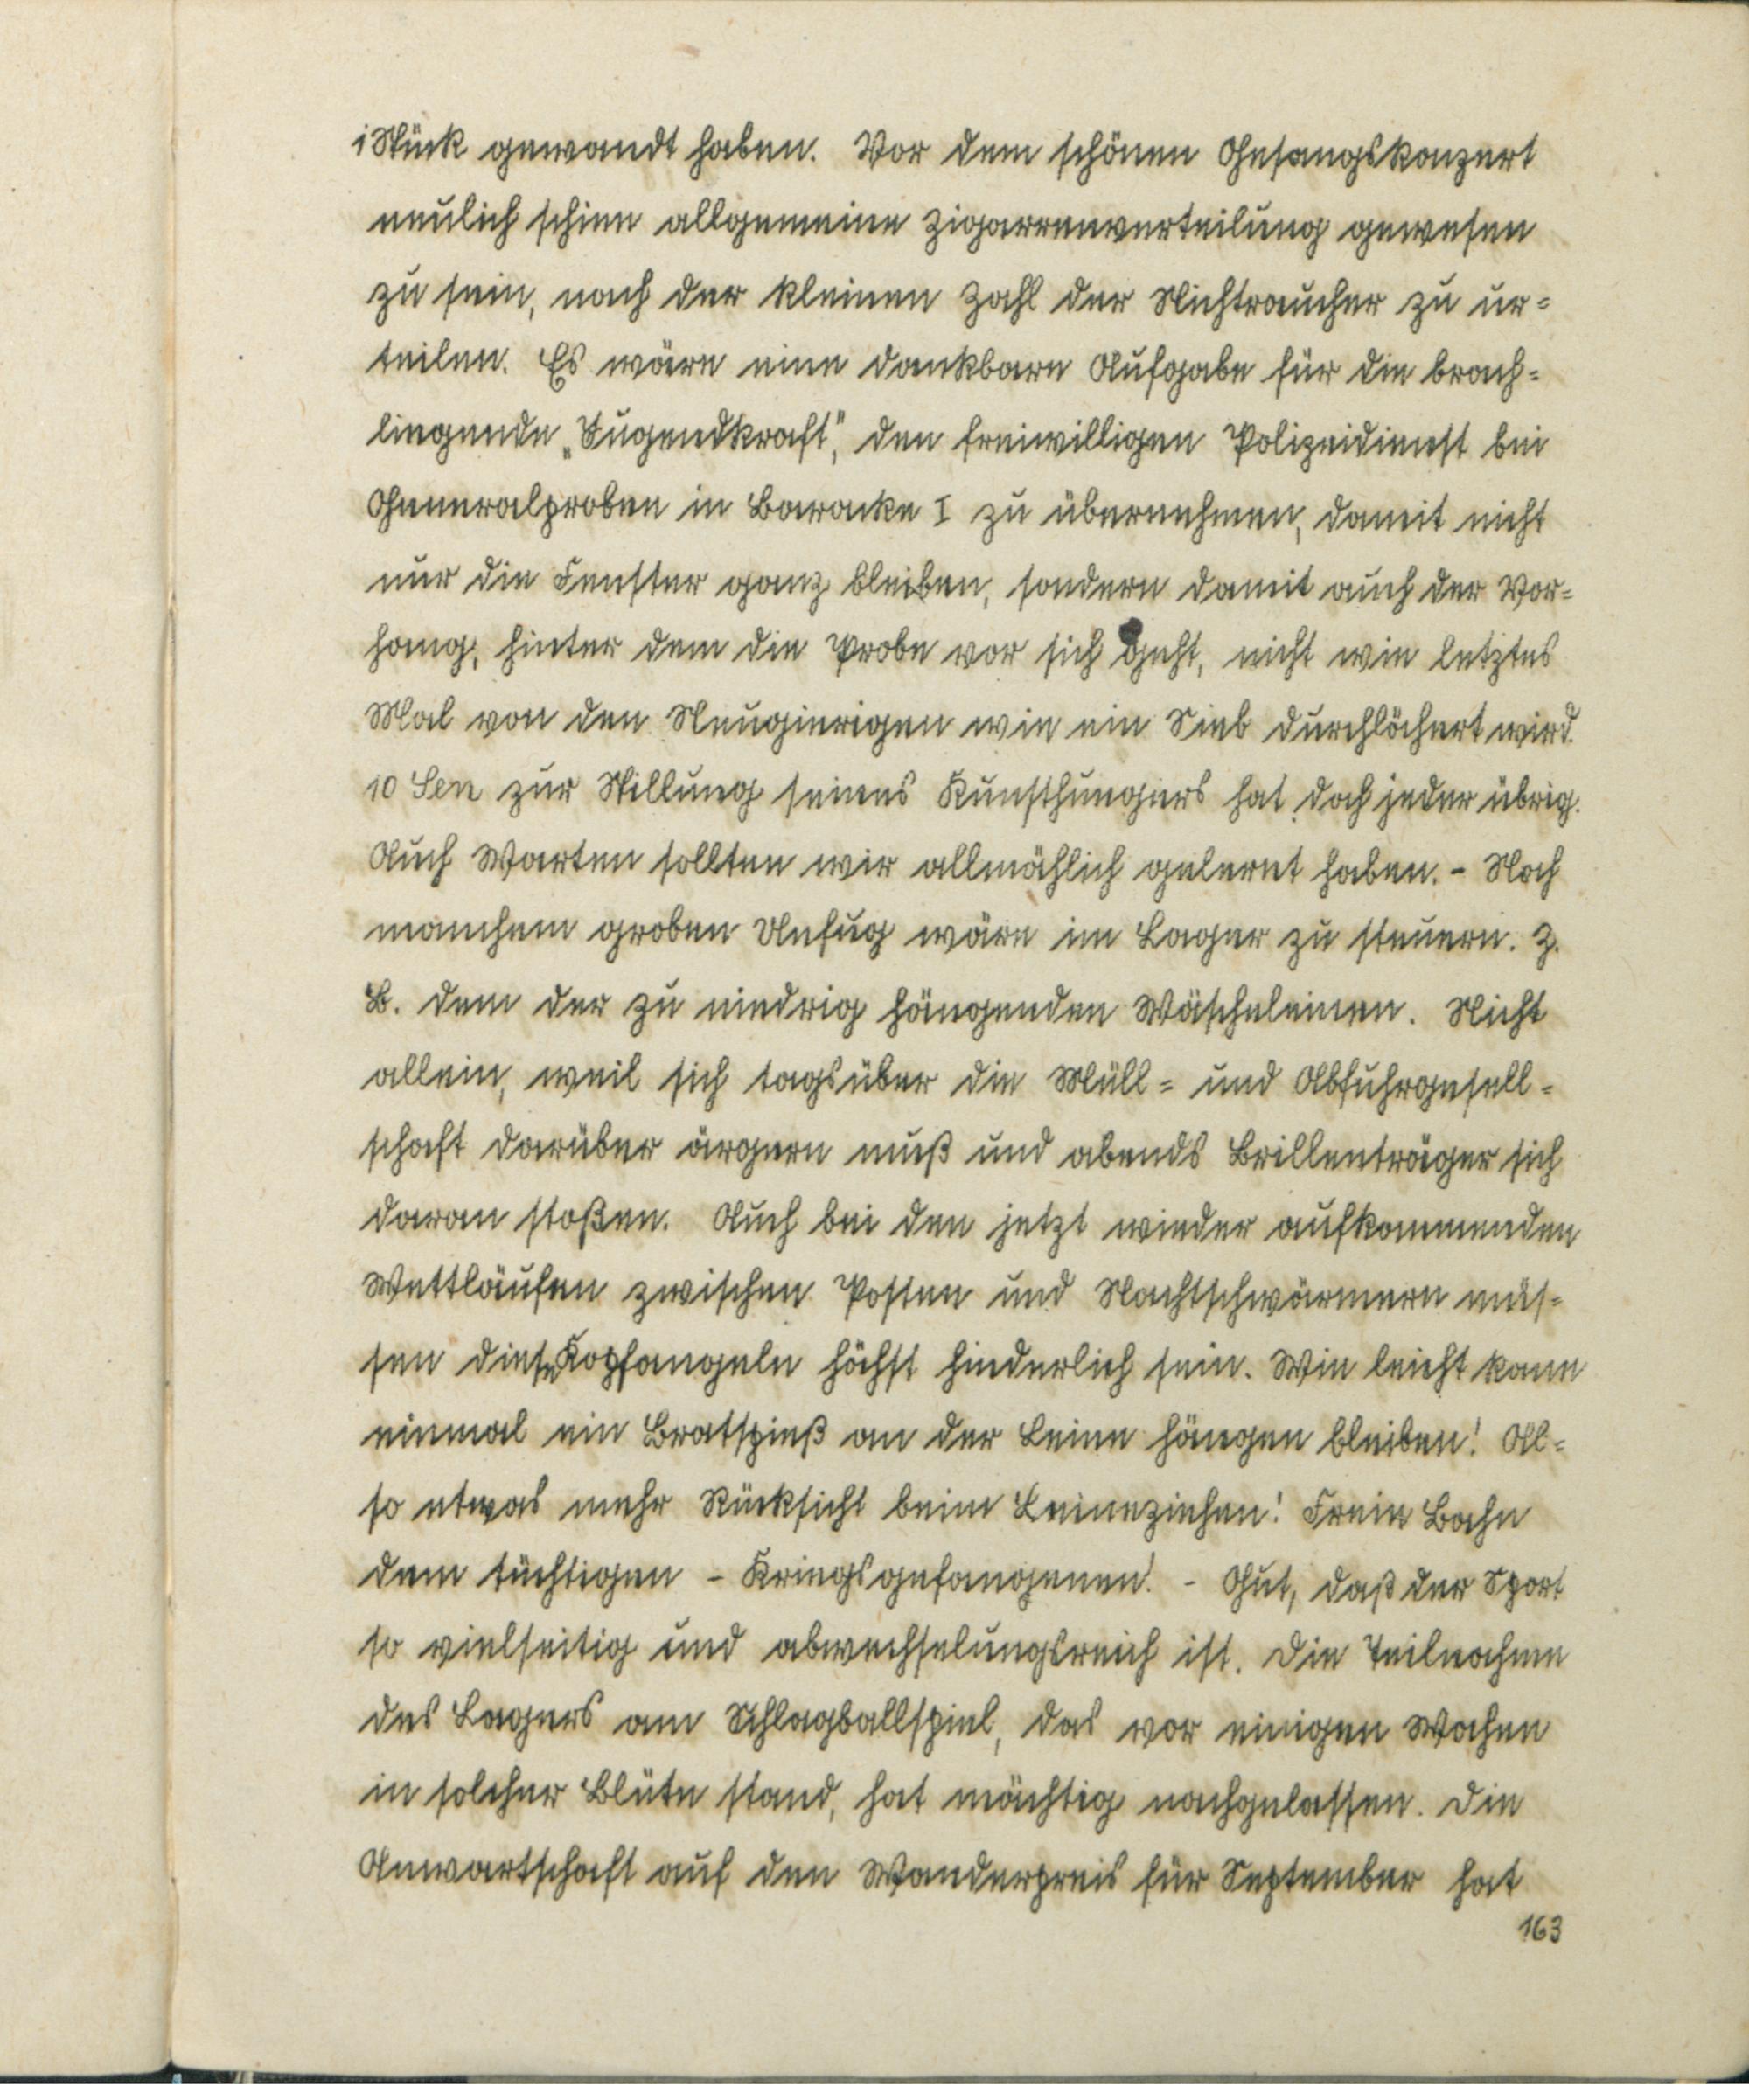 1 Stück gewandt haben. Vor dem schönen Gesangskonzert
neulich schien allgemeine Zigarrenverteilung gewesen
zu sein, nach der kleinen Zahl der Nichtraucher zu ur=
teilen. Es wäre eine dankbare Aufgabe für die brach=
liegende „Jugendkraft“, den freiwilligen Polizeidienst bei
Generalproben in Baracke I zu übernehmen, damit nicht
nur die Fenster ganz bleiben, sondern damit auch der Vor=
hang, hinter dem die Probe vor sich geht, nicht wie letztes
Mal von den Neugierigen wie ein Sieb durchlöchert wird.
10 Sen zur Stillung seines Kunsthungers hat doch jeder übrig.
Auch Warten sollten wir allmählich gelernt haben. - Noch
manchem groben Unfug wäre im Lager zu steuern. Z.
B. dem der zu niedrig hängenden Wäscheleinen. Nicht
allein, weil sich tagsüber die Müll= und Abfuhrgesell=
schaft darüber ärgern muß und abends Brillenträger sich
daran stoßen. Auch bei den jetzt wieder aufkommenden
Wettläufen zwischen Posten und Nachtschwärmern müs=
sen diese Kopfangeln höchst hinderlich sein. Wie leicht kann
einmal ein Bratspieß an der Leine hängen bleiben! Al=
so etwas mehr Rücksicht beim Leineziehen! Freie Bahn
dem tüchtigen - Kriegsgefangenen! - Gut, daß der Sport
so vielseitig und abwechselungsreich ist. Die Teilnahme
des Lagers am Schlagballspiel, das vor einigen Wochen
in solcher Blüte stand, hat mächtig nachgelassen. Die
Anwartschaft auf den Wanderpreis für September hat
163